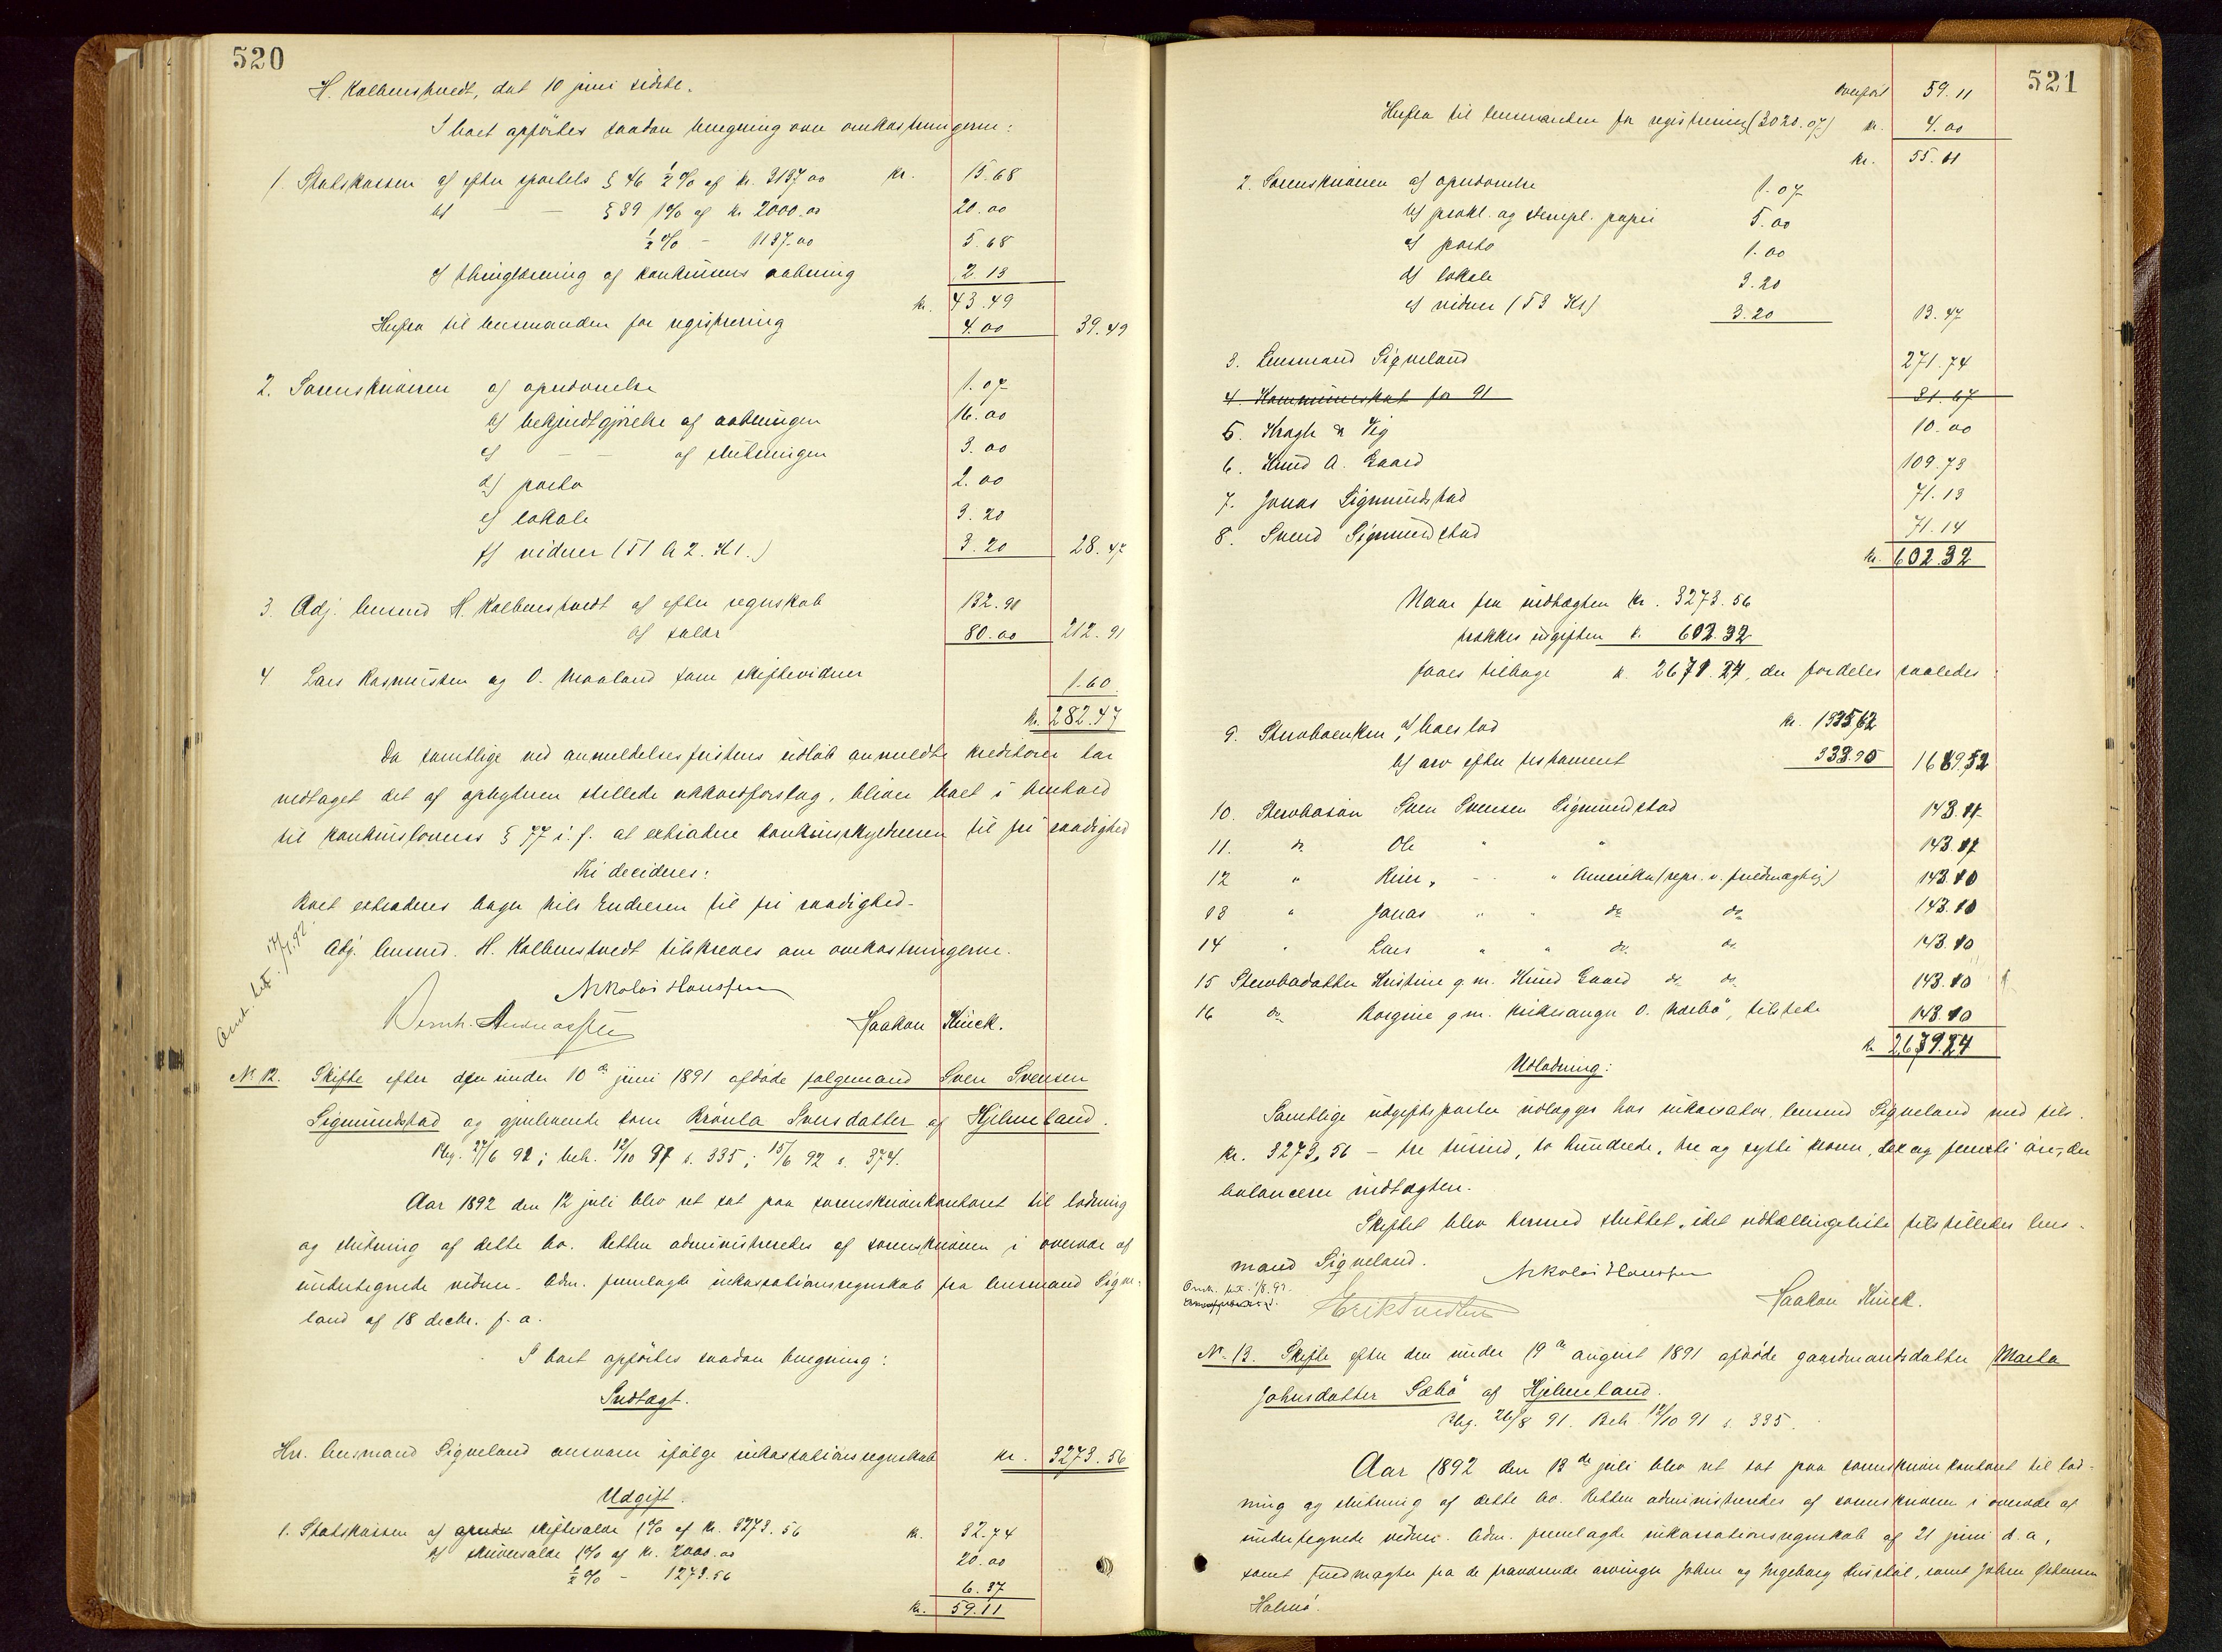 520
H. Kolbenstvedt, dat 10 juni sidste.
I boet opførtes saadan beregning over omkostningerne:
1. Statskassen a) efter sportels § 46 ½ % af kr. 3137.00 kr. 15.68
b) — — § 39 1 % af kr. 2000.00 20.00
½ % — 1137.00 5.68
c) thinglæsning af konkursens aabning 2.13
kr. 43.49
Herfra til lensmanden for registrering 4.00 39.49
2. Sorenskriveren a) opudvarelse 1.07
b) bekjendtgjørelse af aabningen 16.00
c) — — af slutningen 3.00
d) porto 2.00
e) lokale 3.20
f) vidner (51 a 2. Kl.) 3.20 28.47
3. Adj. lensmd H. Kolbenstvedt a) efter regnskab 132.91
b) salær 80.00 212.91
4 Lars Rasmussen og O. Maaland som skiftevidner 1.60
kr. 282.47
Da samtlige ved anmeldelsesfristens udløb anmeldte kreditorer har
vedtaget det af opbyderen stillede akkordforslag, bliver boet i henhold
til konkurslovens § 77 i. f. at extradere konkursskyldneren til fri raadighed
Thi decideres:
Boet extraderes bager Nils Endresen til fri raadighed.
Adj. lensmd. H. Kolbenstvedt tilskreves om omkostningerne.
Nikolai Hanssen
Bernh. Andreassen Haakon Kinck.
No 12. Skifte efter den under 10de juni 1891 afdøde følgemand Sven Svensen
Sigmundstad og gjenlevende kone Brønla Svensdatter af Hjelmeland.
Reg. 27/6 91; beh. 12/10 91 s. 335; 15/6 92 s. 374.
Aar 1892 den 12 juli blev ret sat paa sorenskriverkontoret til lodning
og slutning af dette bo. Retten administreredes af sorenskriveren i overvær af
undertegnede vidner. Adm. fremlagde inkassationsregnskab fra lensmand Sigve-
land af 18 decbr. f. a.
I boet opførtes saadan beregning:
Indtægt.
Hr. lensmand Sigveland ansvarer ifølge inkassationsregnskab kr. 3273.56
Udgift.
1. Statskassen a) skiftesalær 1 % af kr. 3273.56 kr. 32.74
b) skriversalær 1 % af kr. 2000.00 20.00
½ % — 1273.56 6.37
kr. 59.11
521
overført 59.11
Herfra til lensmanden for registrering (3020.07) kr. 4.00
kr. 55.11
2. Sorenskriveren a) opudvarelse 1.07
b) prokl. og stempl. papir 5.00
c) porto 1.00
d) lokale 3.20
e) vidner (53 Kl) 3.20 13.47
3. Lensmand Sigveland 271.74
4. Kommuneskat for 91 31.67
5. Kragh & Vig 10.00
6. Knud A. Gaard 109.73
7. Jonas Sigmundstad 71.13
8. Svend Sigmundstad 71.14
kr. 602.32
Naar fra indtægten kr. 3273.56
trækkes udgiften k. 602.32
faaes tilbage k. 2671.24, der fordeles saaledes:
9. Stervboenken, a) boeslod kr. 1335.62
b) arv efter testament 333.90 1669.52
10. Stervbosøn Sven Svensen Sigmundstad 143.
11. do Ole " " 143.
12 " Reier, " " Amerika (repr. v. fuldmægtig) 143.10
13 " Jonas " " do do 143.10
14 " Lars " " do. do. 143.10
15 Stervbodatter Kristine g. m. Knud Gaard do do 143.10
16 do Borgine g m. kirkesanger O. Norbø, tilstede 143.10
k 2671.24
Udlodning:
Samtlige udgiftsposter udlægges hos inkassator, lensmd Sigveland med tils.
kr. 3273,56 – tre tusind, to hundrede, tre og sytti kroner, sex og femti øre, der
balancerer indtægten.
Skiftet blev dermed sluttet, idet udtællingsliste tilstilledes lens-
mand Sigveland.
Nikolai Hanssen
Haakon Kinck.
No. 13. Skifte efter den under 19de august 1891 afdøde gaardmandsdatter Marta
Johnsdatter Sæbø af Hjelmeland.
Reg. 26/8 91. Beh. 12/10 91 s. 335.
Aar 1892 den 13de juli blev ret sat paa sorenskriverkontoret til lod-
ning og slutning af dette bo. Retten administreredes af sorenskriveren i overvær af
undertegnede vidner. Adm. fremlagde inkassationsregnskab af 21 juni d. a,
samt fuldmagter fra de fraværende arvinger John og Ingeborg samt John